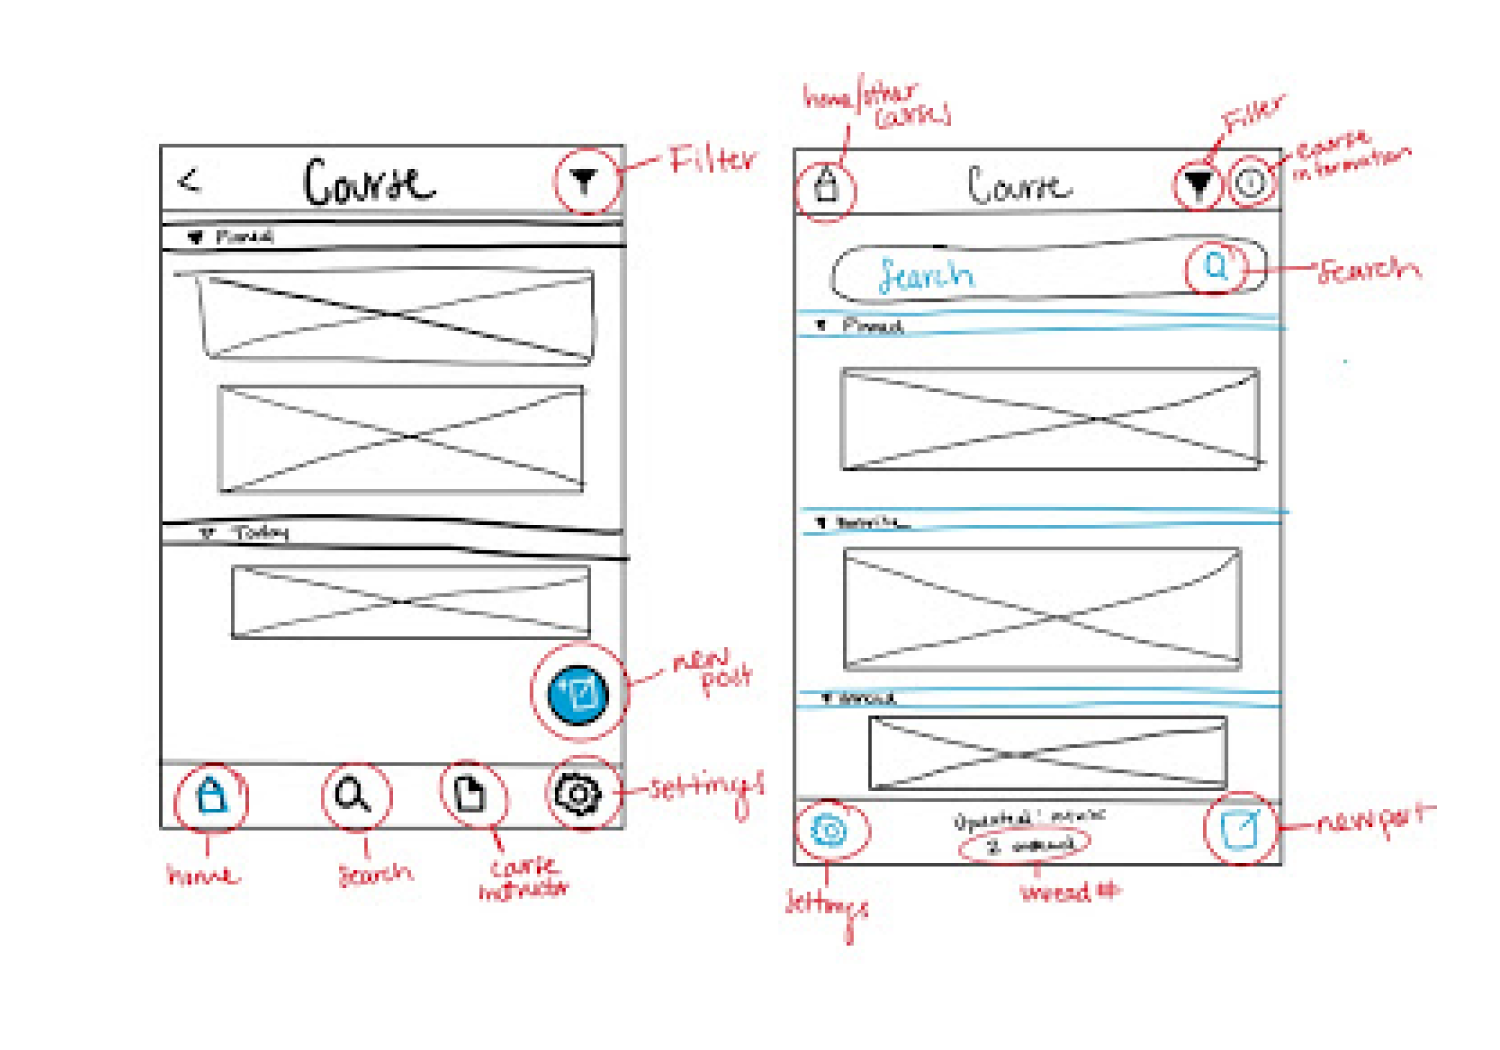 < Course
Filter
Pinned
Today
new
post
settings
home
search
course
instructor
home/other
courses
Filter
course
information
Course
Search
Search
Pinned
Unread
Updated:
2 unread
new post
settings
unread #